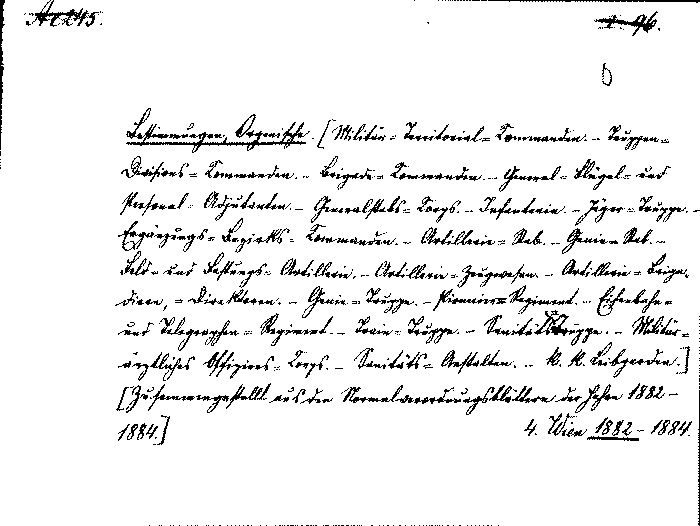 Ac 245.
2. 96.
Bestimmungen, Organische. [Militär-Territorial-Commanden. – Truppen-
Divisions-Commanden. – Brigade-Commanden. – General-Flügel- und
Personal-Adjutanten. – Generalstabs-Corps. – Infanterie. – Jäger-Truppe. –
Ergänzungs-Bezirks-Commanden. – Artillerie-Stab. – Genie-Stab. –
Feld- und Festungs-Artillerie. – Artillerie-Zeugwesen. – Artillerie-Briga-
diere, -Direktoren. – Genie-Truppe. – Pionnier-Regiment. – Eisenbahn-
und Telegraphen-Regiment. – Train-Truppe. – Sanitätstruppe. – Militär-
ärztliches Offiziers-Corps. – Sanitäts-Anstalten. – K. K. Leibgarden.]
[Zusammengestellt aus den Normalverordnungsblättern der Jahre 1882 –
1884.]
4. Wien 1882 – 1884.